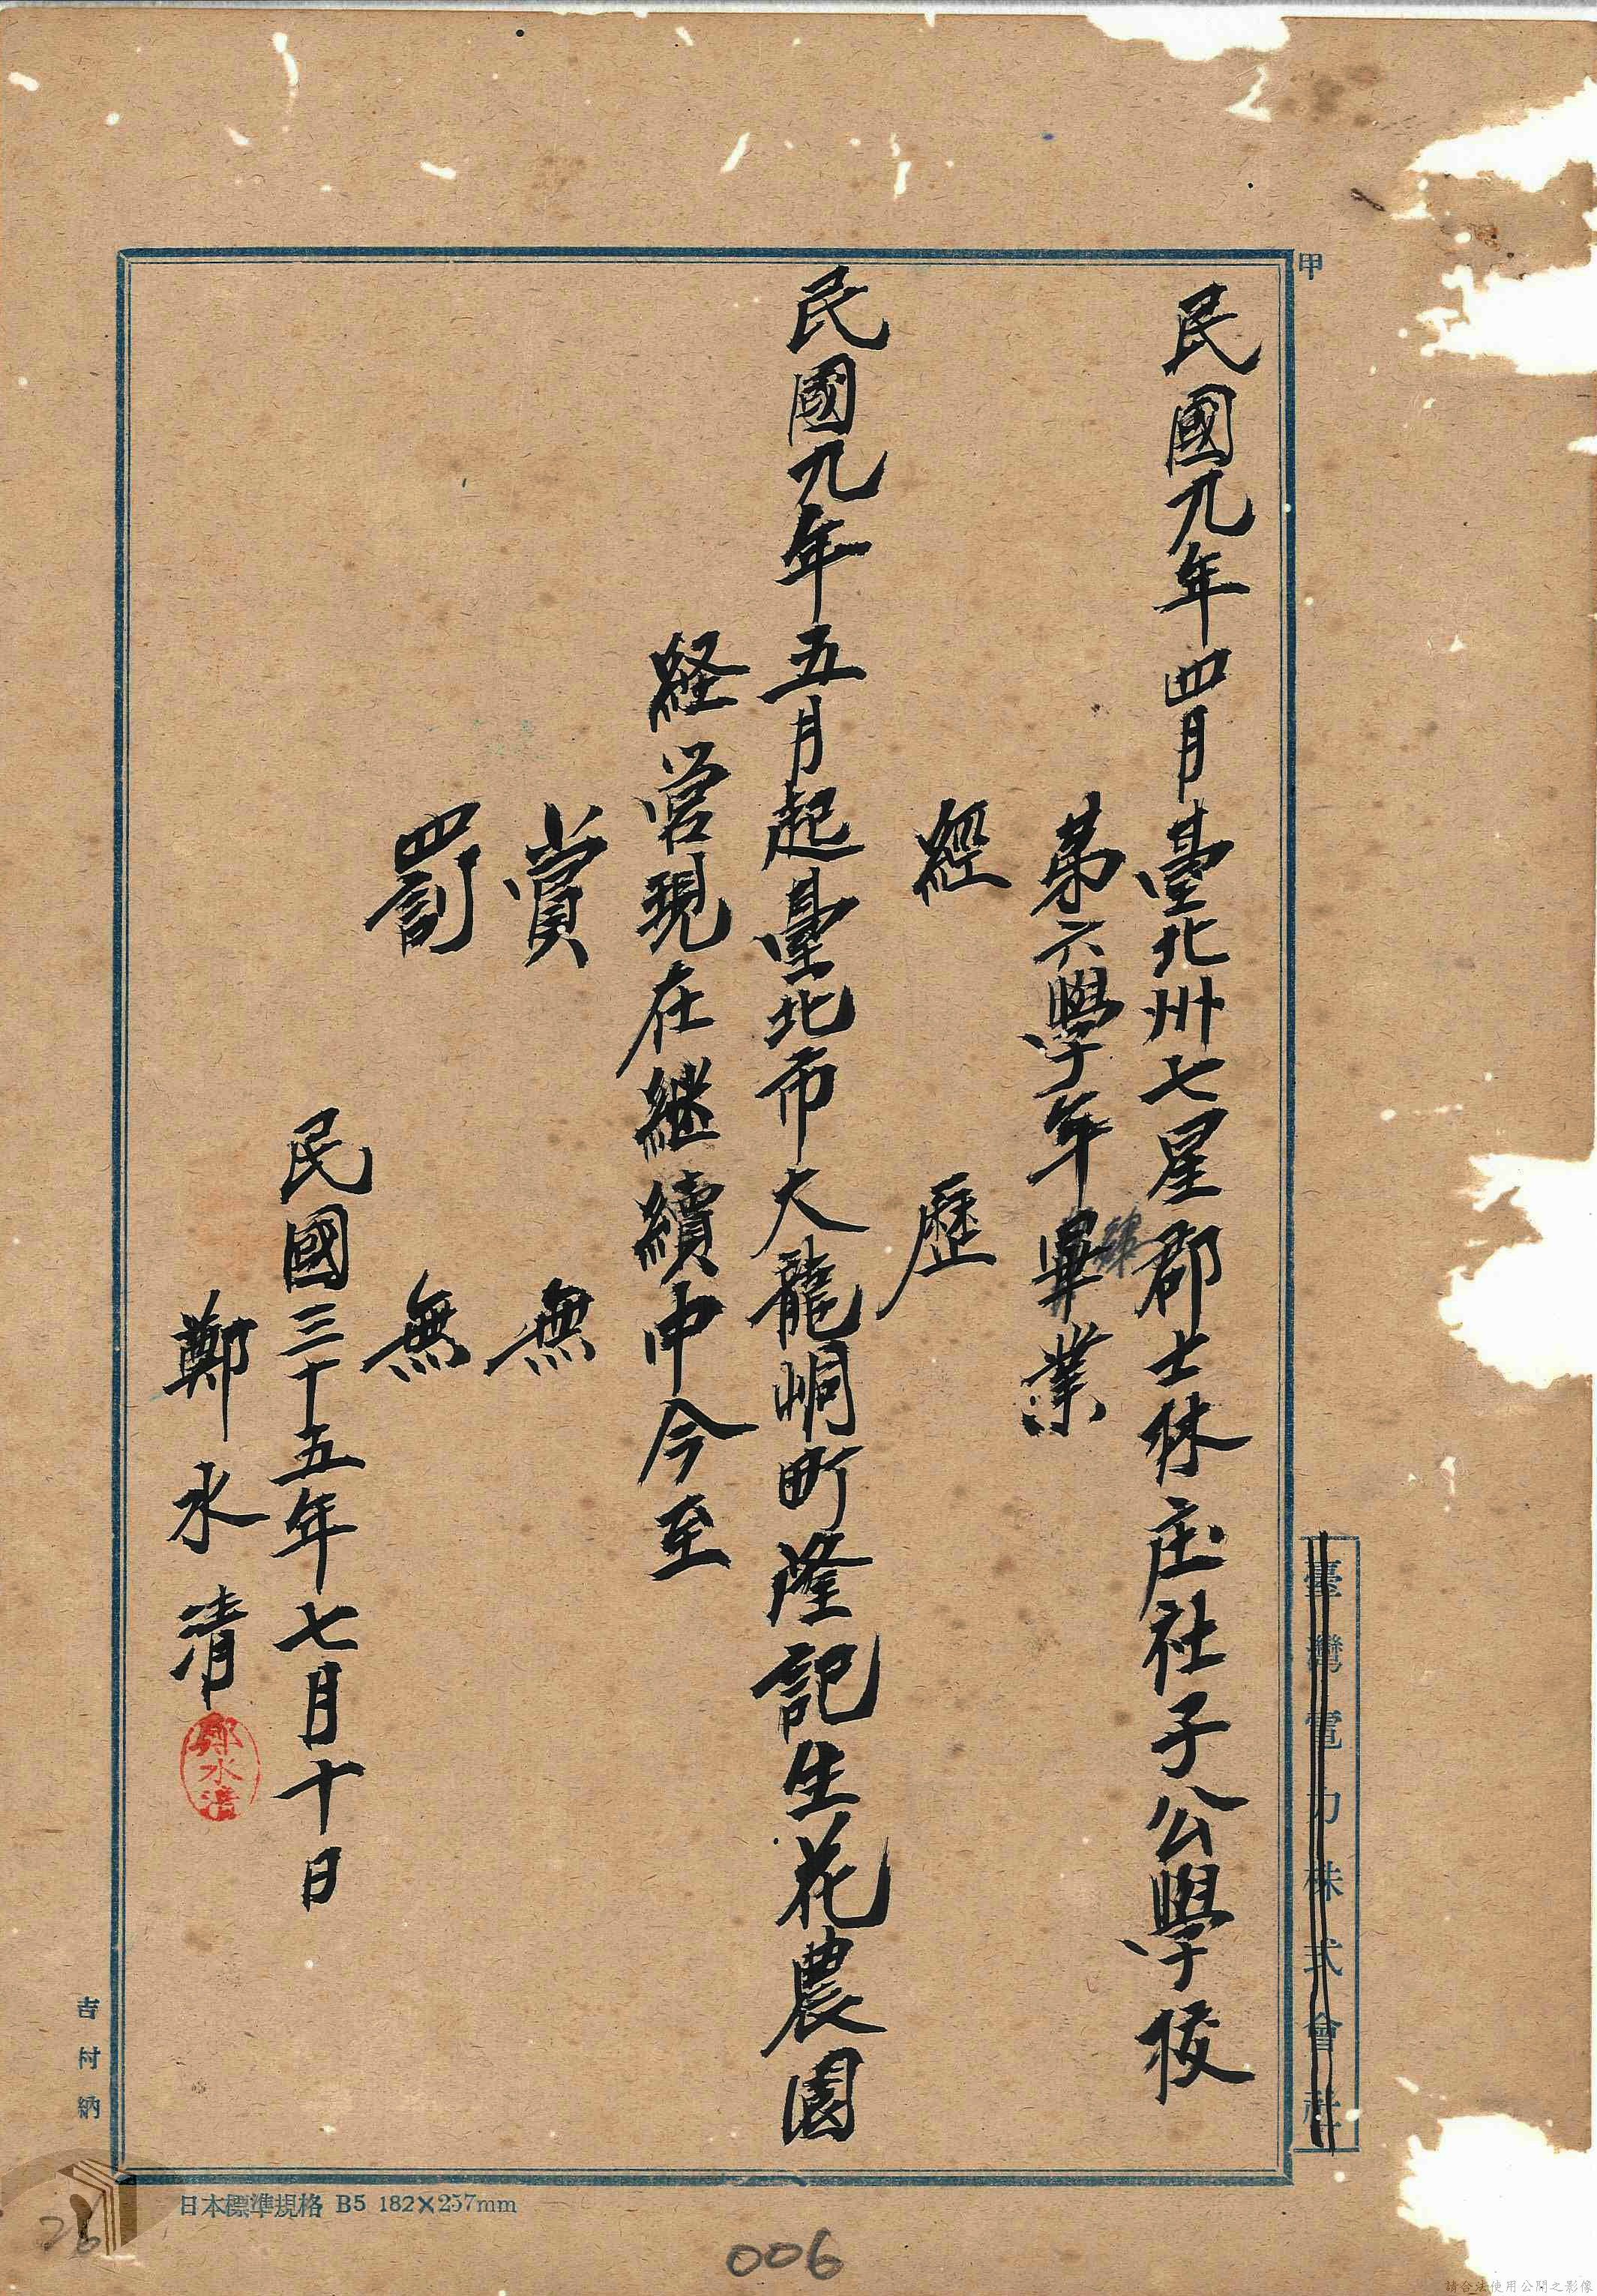 甲
臺灣電力株式會社
民國九年四月臺北州七星郡士林庄社子公學校
第六學年畢業
經歷
民國九年五月起臺北市大龍峒町隆記生花農園
経営現在継續中今至
賞 無
罰 無
民國三十五年七月十日
鄭水清
鄭水清
吉村納
日本標準規格 B5 182×257mm
26
006
請合法使用公開之影像